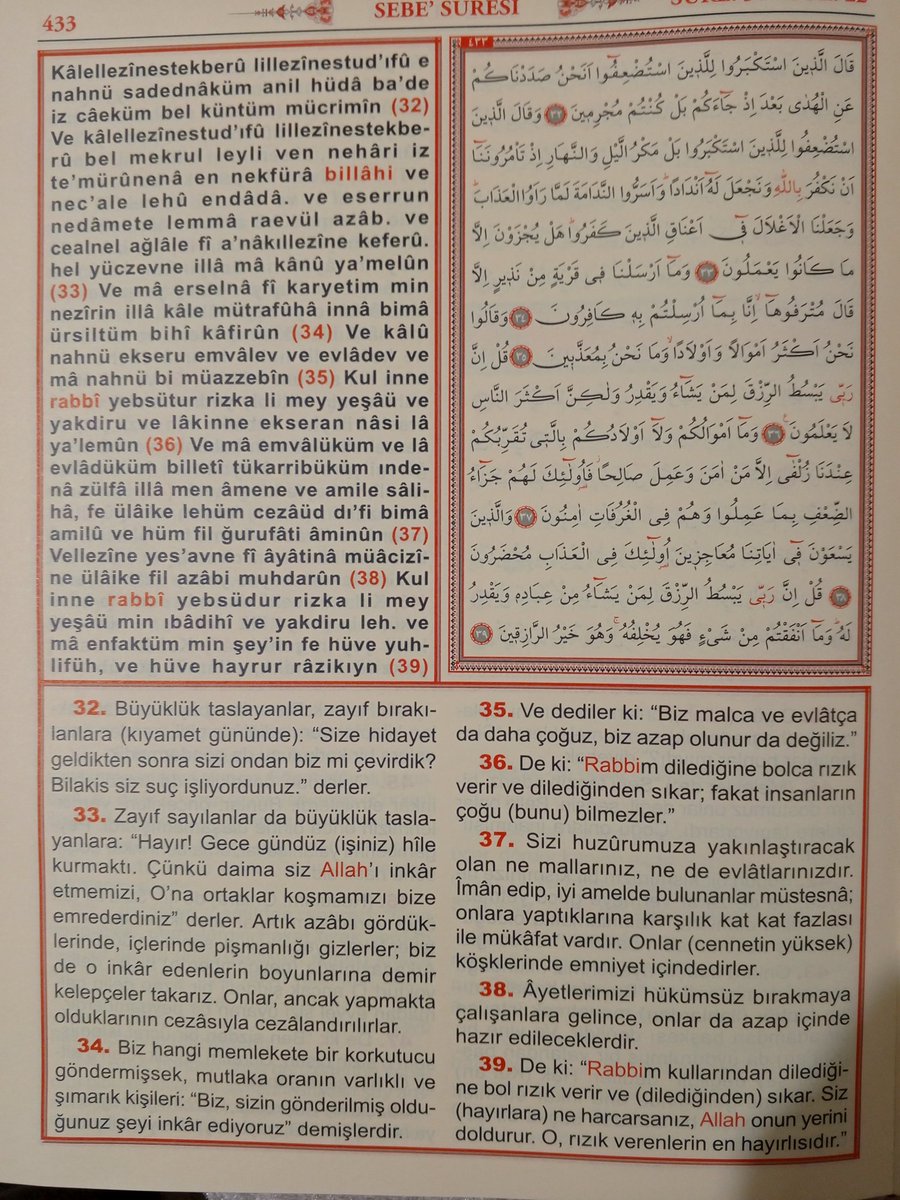 433
SEBE’ SÛRESİ
Kâlellezînestekberû lillezînestud’ıfû e
nahnü sadednâküm anil hüdâ ba’de
iz câeküm bel küntüm mücrimîn (32)
Ve kâlellezînestud’ıfû lillezînestekbe-
rû bel mekrul leyli ven nehâri iz
te’mürûnenâ en nekfürâ billâhi ve
nec’ale lehû endâdâ. ve eserrun
nedâmete lemmâ raevül azâb. ve
cealnel ağlâle fî a’nâkıllezîne keferû.
hel yüczevne illâ mâ kânû ya’melûn
(33) Ve mâ erselnâ fî karyetim min
nezîrin illâ kâle mütrafûhâ innâ bimâ
ürsiltüm bihî kâfirûn (34) Ve kâlû
nahnü ekseru emvâlev ve evlâdev ve
mâ nahnü bi müazzebîn (35) Kul inne
rabbî yebsütur rizka li mey yeşâü ve
yakdiru ve lâkinne ekseran nâsi lâ
ya’lemûn (36) Ve mâ emvâlüküm ve lâ
evlâdüküm billetî tükarribüküm ınde-
nâ zülfâ illâ men âmene ve amile sâli-
hâ, fe ülâike lehüm cezâüd dı’fi bimâ
amilû ve hüm fil ğurufâti âminûn (37)
Vellezîne yes’avne fî âyâtinâ müâcizî-
ne ülâike fil azâbi muhdarûn (38) Kul
inne rabbî yebsüdur rizka li mey
yeşâü min ıbâdihî ve yakdiru leh. ve
mâ enfaktüm min şey’in fe hüve yuh-
lifüh, ve hüve hayrur râzikıyn (39)
٤٣٣
قَالَ الَّذِينَ اسْتَكْبَرُوا لِلَّذِينَ اسْتُضْعِفُٓوا اَنَحْنُ صَدَدْنَاكُمْ
عَنِ الْهُدٰى بَعْدَ اِذْ جَٓاءَكُمْ بَلْ كُنْتُمْ مُجْرِمِينَ ٣٢ وَقَالَ الَّذِينَ
اسْتُضْعِفُوا لِلَّذِينَ اسْتَكْبَرُوا بَلْ مَكْرُ الَّيْلِ وَالنَّهَارِ اِذْ تَأْمُرُونَنَٓا
اَنْ نَكْفُرَ بِاللّٰهِ وَنَجْعَلَ لَهُٓ اَنْدَادًا وَاَسَرُّوا النَّدَامَةَ لَمَّا رَاَوُا الْعَذَابَ
وَجَعَلْنَا الْاَغْلَالَ فِٓي اَعْنَاقِ الَّذِينَ كَفَرُوا هَلْ يُجْزَوْنَ اِلَّا
مَا كَانُوا يَعْمَلُونَ ٣٣ وَمَٓا اَرْسَلْنَا فِي قَرْيَةٍ مِنْ نَذِيرٍ اِلَّا
قَالَ مُتْرَفُوهَٓا اِنَّا بِمَٓا اُرْسِلْتُمْ بِهِ كَافِرُونَ ٣٤ وَقَالُوا
نَحْنُ اَكْثَرُ اَمْوَالًا وَاَوْلَادًا وَمَا نَحْنُ بِمُعَذَّبِينَ ٣٥ قُلْ اِنَّ
رَبِّي يَبْسُطُ الرِّزْقَ لِمَنْ يَشَٓاءُ وَيَقْدِرُ وَلٰكِنَّ اَكْثَرَ النَّاسِ
لَا يَعْلَمُونَ ٣٦ وَمَٓا اَمْوَالُكُمْ وَلَٓا اَوْلَادُكُمْ بِالَّتِي تُقَرِّبُكُمْ
عِنْدَنَا زُلْفٰٓى اِلَّا مَنْ اٰمَنَ وَعَمِلَ صَالِحًا فَاُولٰٓئِكَ لَهُمْ جَزَٓاءُ
الضِّعْفِ بِمَا عَمِلُوا وَهُمْ فِي الْغُرُفَاتِ اٰمِنُونَ ٣٧ وَالَّذِينَ
يَسْعَوْنَ فِٓي اٰيَاتِنَا مُعَاجِزِينَ اُولٰٓئِكَ فِي الْعَذَابِ مُحْضَرُونَ
٣٨ قُلْ اِنَّ رَبِّي يَبْسُطُ الرِّزْقَ لِمَنْ يَشَٓاءُ مِنْ عِبَادِهِ وَيَقْدِرُ
لَهُ وَمَٓا اَنْفَقْتُمْ مِنْ شَيْءٍ فَهُوَ يُخْلِفُهُ وَهُوَ خَيْرُ الرَّازِقِينَ ٣٩
32. Büyüklük taslayanlar, zayıf bırakı-
lanlara (kıyamet gününde): “Size hidayet
geldikten sonra sizi ondan biz mi çevirdik?
Bilakis siz suç işliyordunuz.” derler.
33. Zayıf sayılanlar da büyüklük tasla-
yanlara: “Hayır! Gece gündüz (işiniz) hîle
kurmaktı. Çünkü daima siz Allah’ı inkâr
etmemizi, O’na ortaklar koşmamızı bize
emrederdiniz” derler. Artık azâbı gördük-
lerinde, içlerinde pişmanlığı gizlerler; biz
de o inkâr edenlerin boyunlarına demir
kelepçeler takarız. Onlar, ancak yapmakta
olduklarının cezâsıyla cezâlandırılırlar.
34. Biz hangi memlekete bir korkutucu
göndermişsek, mutlaka oranın varlıklı ve
şımarık kişileri: “Biz, sizin gönderilmiş oldu-
ğunuz şeyi inkâr ediyoruz” demişlerdir.
35. Ve dediler ki: “Biz malca ve evlâtça
da daha çoğuz, biz azap olunur da değiliz.”
36. De ki: “Rabbim dilediğine bolca rızık
verir ve dilediğinden sıkar; fakat insanların
çoğu (bunu) bilmezler.”
37. Sizi huzûrumuza yakınlaştıracak
olan ne mallarınız, ne de evlâtlarınızdır.
Îmân edip, iyi amelde bulunanlar müstesnâ;
onlara yaptıklarına karşılık kat kat fazlası
ile mükâfat vardır. Onlar (cennetin yüksek)
köşklerinde emniyet içindedirler.
38. Âyetlerimizi hükümsüz bırakmaya
çalışanlara gelince, onlar da azap içinde
hazır edileceklerdir.
39. De ki: “Rabbim kullarından dilediği-
ne bol rızık verir ve (dilediğinden) sıkar. Siz
(hayırlara) ne harcarsanız, Allah onun yerini
doldurur. O, rızık verenlerin en hayırlısıdır.”